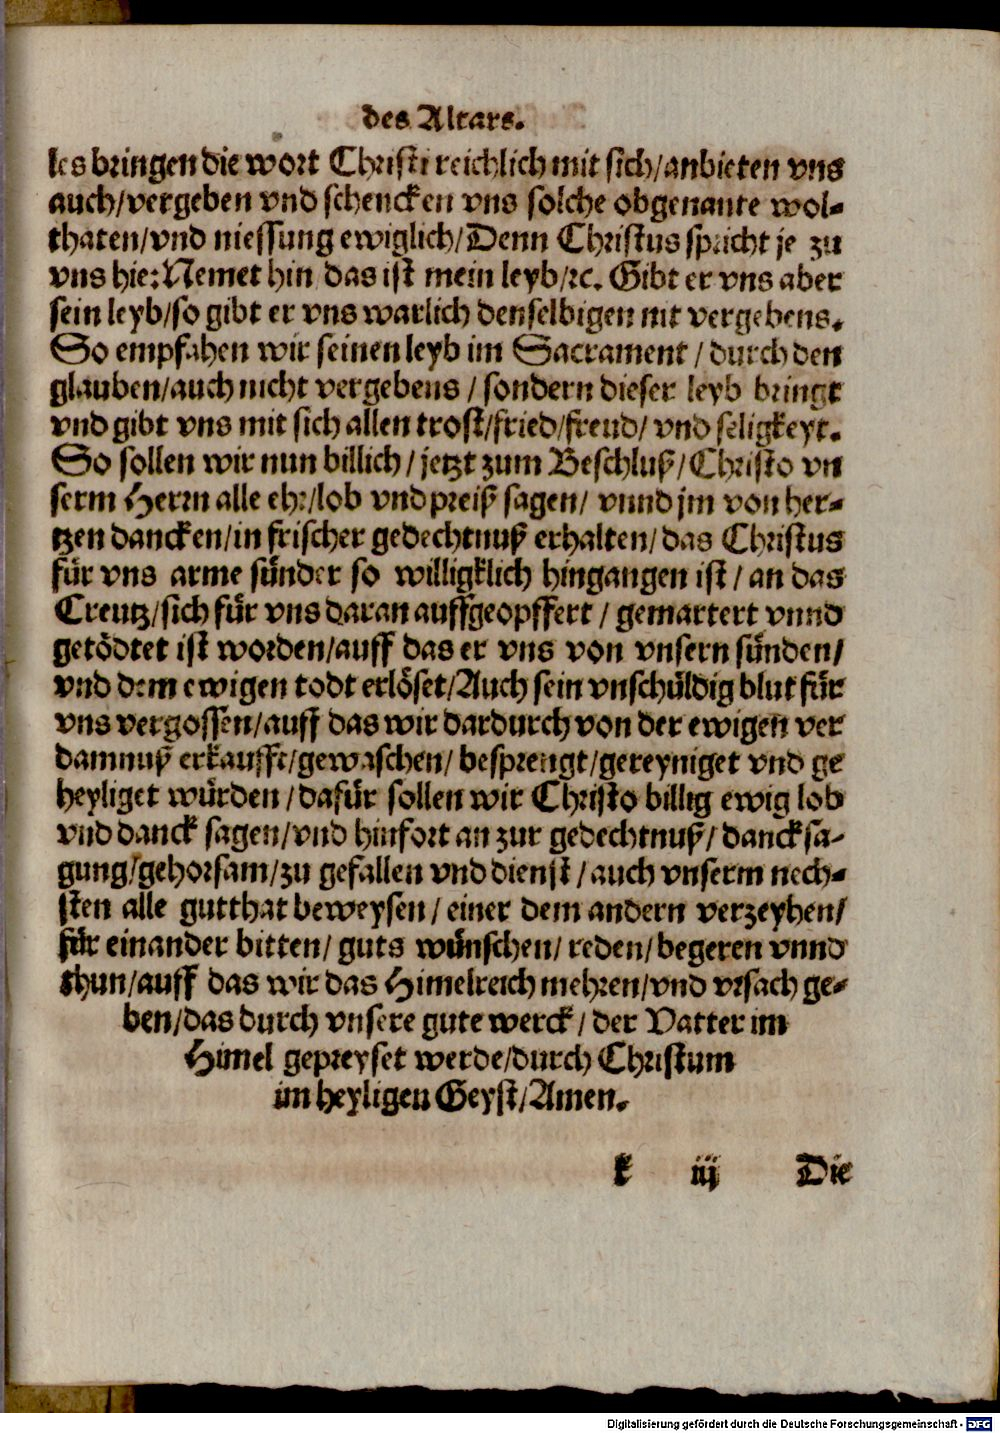 des Altars.
les bringen die wort Christi reichlich mit sich/anbieten vns
auch/vergeben vnd schencken vns solche obgenante wol-
thaten/vnd niessung ewiglich/Denn Christus spricht je zu
vns hie: Nemet hin das ist mein leyb/ꝛc. Gibt er vns aber
sein leyb/so gibt er vns warlich denselbigen nit vergebens.
So empfahen wir seinen leyb im Sacrament/durch den
glauben/auch nicht vergebens/sondern dieser leyb bringt
vnd gibt vns mit sich allen trost/fried/freud/vnd seligkeyt.
So sollen wir nun billich/jetzt zum Beschluß/Christo vn
serm Herrn alle ehr/lob vnd preiß sagen/vnnd jm von her-
tzen dancken/in frischer gedechtnuß erhalten/das Christus
für vns arme sünder so willigklich hingangen ist/an das
Creutz/sich für vns daran auffgeopffert/gemartert vnnd
getödtet ist worden/auff das er vns von vnsern sünden/
vnd dem ewigen todt erlöset/Auch sein vnschüldig blut für
vns vergossen/auff das wir dardurch von der ewigen ver
damnuß erkaufft/gewaschen/besprengt/gereyniget vnd ge
heyliget würden/dafür sollen wir Christo billig ewig lob
vnd danck sagen/vnd hinfort an zur gedechtnuß/dancksa-
gung/gehorsam/zu gefallen vnd dienst/auch vnserm nech-
sten alle gutthat beweysen/einer dem andern verzeyhen/
für einander bitten/guts wünschen/reden/begeren vnnd
thun/auff das wir das Himelreich mehren/vnd vrsach ge-
ben/das durch vnsere gute werck/der Vatter im
Himel gepreyset werde/durch Christum
im heyligen Geyst/Amen.
k iij Die
Digitalisierung gefördert durch die Deutsche Forschungsgemeinschaft - DFG